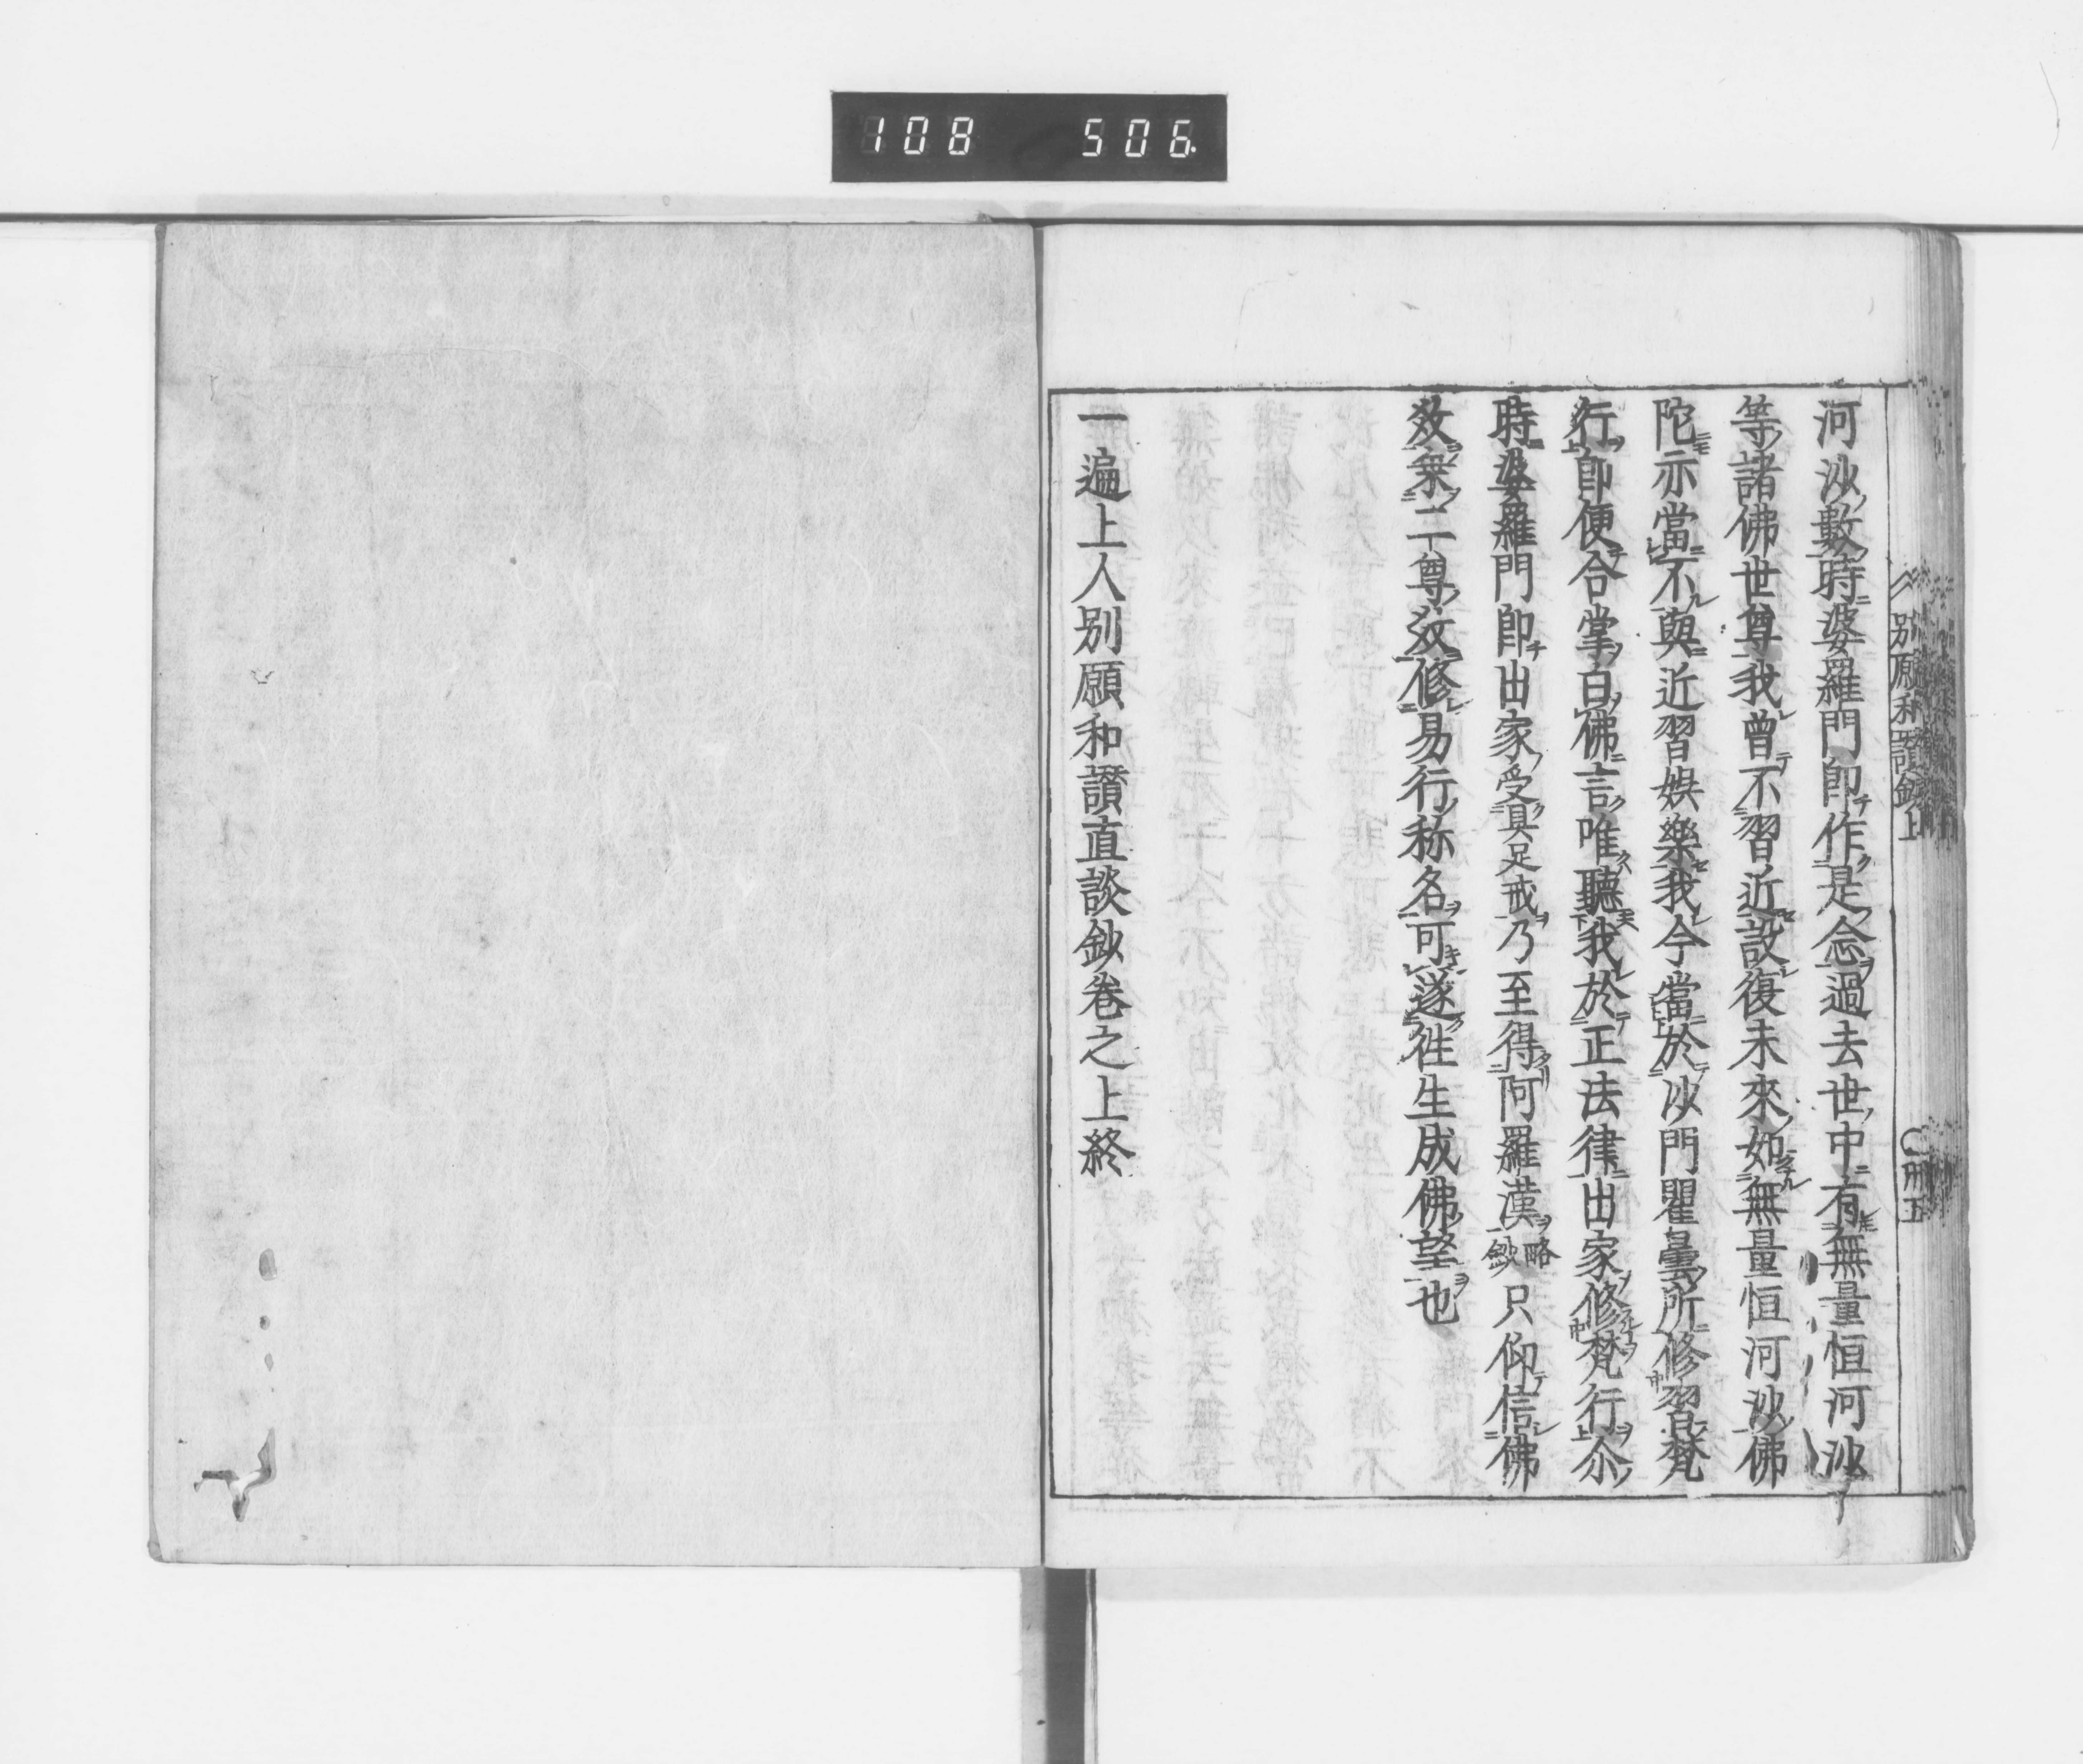 108 506
別願和讃鈔上
〇卌五
河沙數時婆羅門即作是念過去世中有無量恒河沙
等諸佛世尊我曾不習近設復未來如無量恒河沙佛
陀亦當不與近習娯樂我今當於沙門瞿曇所修習梵
行即便合掌白佛言唯聽我於正法律出家修梵行尒
時婆羅門即出家受具足戒乃至得阿羅漢略鈔只仰信佛
敎乗二尊敎修易行称名可遂徃生成佛望也
一遍上人別願和讃直談鈔卷之上終